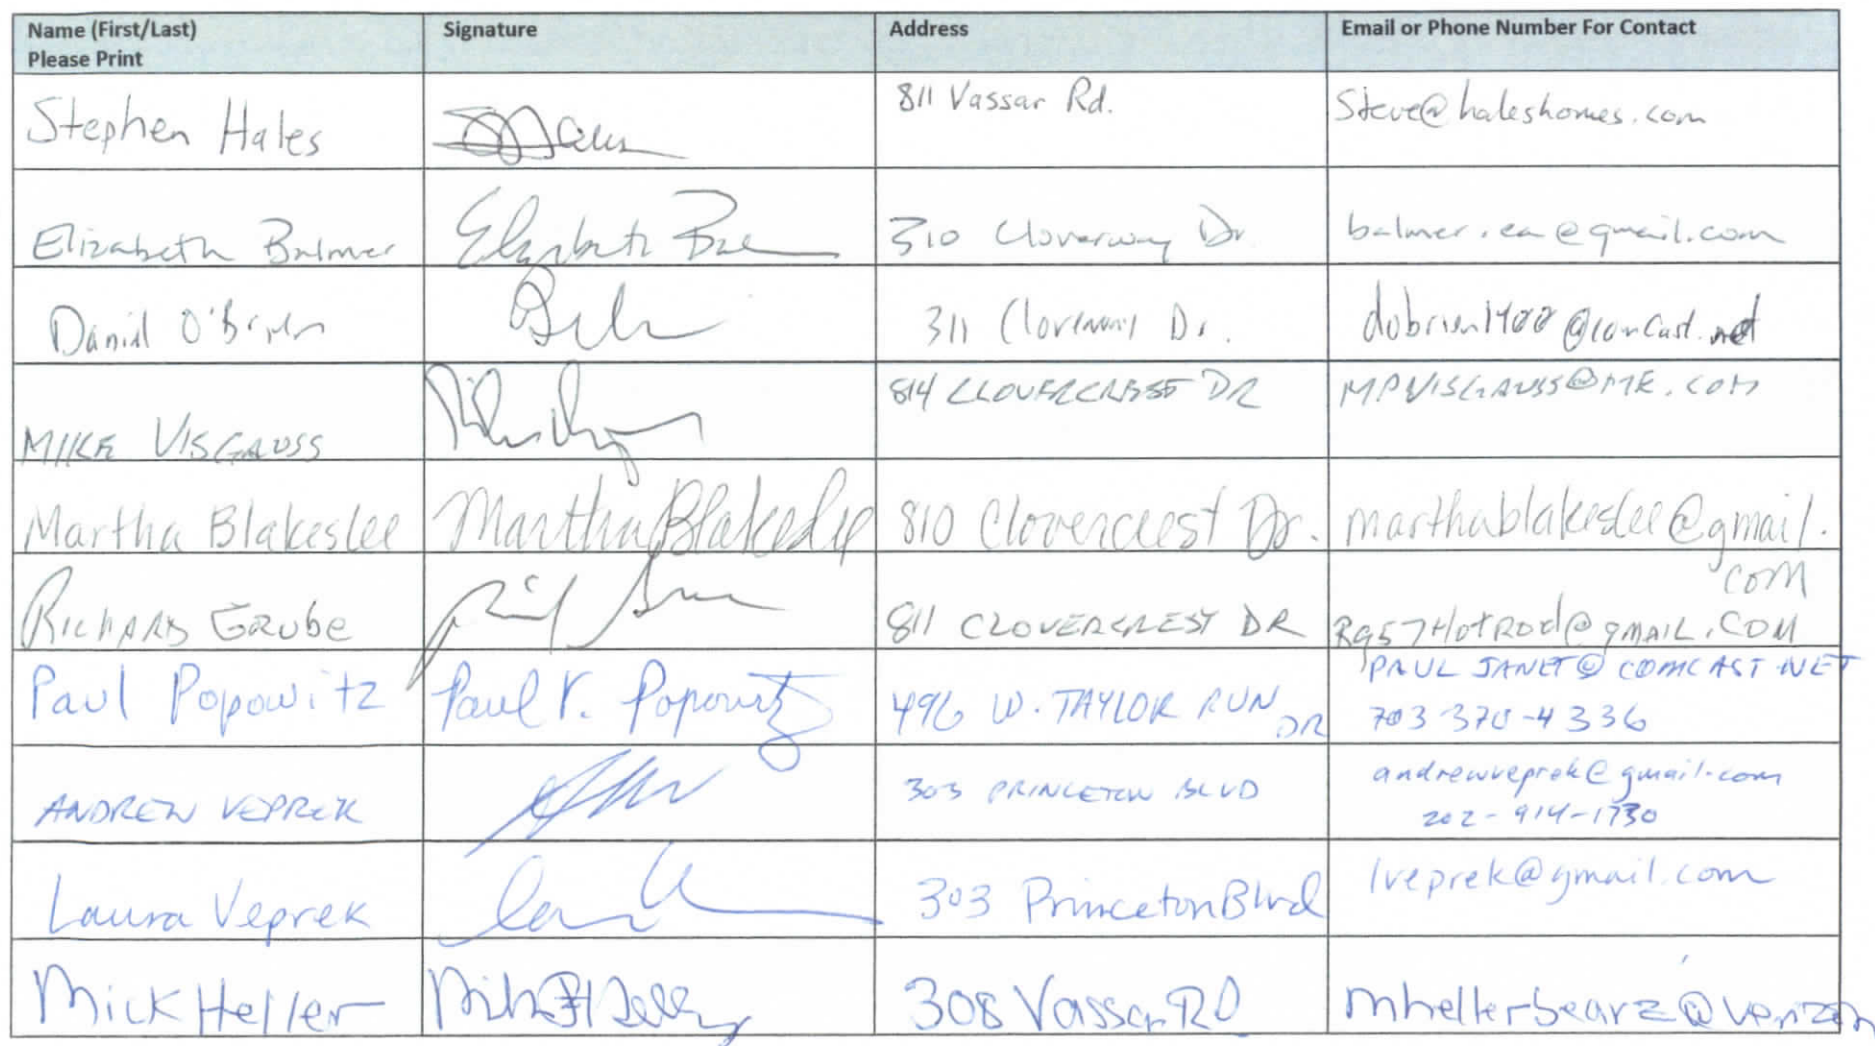 Name (First/Last)
Please Print
Signature
Address
Email or Phone Number For Contact
Stephen Hales
811 Vassar Rd.
Steve@haleshomes.com
Elizabeth Balmer
Elizabeth
310 Cloverway Dr.
balmer.ea@gmail.com
Daniel O'Brien
311 Cloverway Dr.
dobrien1400@comcast.net
MIKE VISGAUSS
814 CLOVERCREST DR
MPVISGAUSS@ME.COM
Martha Blakeslee
Martha Blakeslee
810 Clovercrest Dr.
marthablakeslee@gmail.
com
RICHARD GRUBE
811 CLOVERCREST DR
RG57HotRod@gmail.COM
Paul Popowitz
Paul V. Popowitz
496 W. TAYLOR RUN
DR
PAULJANET@COMCAST.NET
703-370-4336
ANDREW VEPREK
303 PRINCETON BLVD
andrewveprek@gmail.com
202-914-1730
Laura Veprek
303 Princeton Blvd
lveprek@gmail.com
Mick Heller
308 Vassar RD
mhellerbearz@verizon